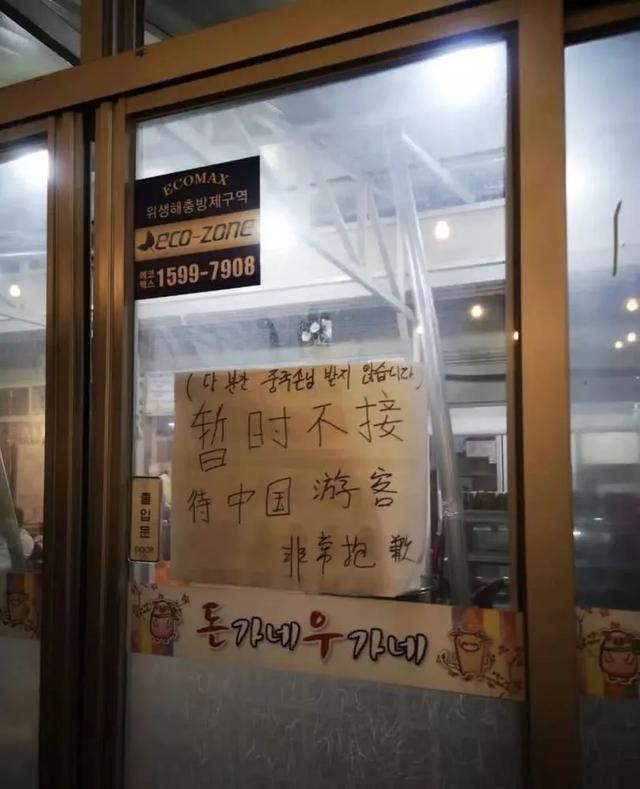 ECOMAX
위생해충방제구역
eco-zone
에코맥스 1599-7908
(당 분간 중국손님 받지 않습니다)
暂时不接
待中国游客
非常抱歉
출입문
DOOR
돈가네우가네